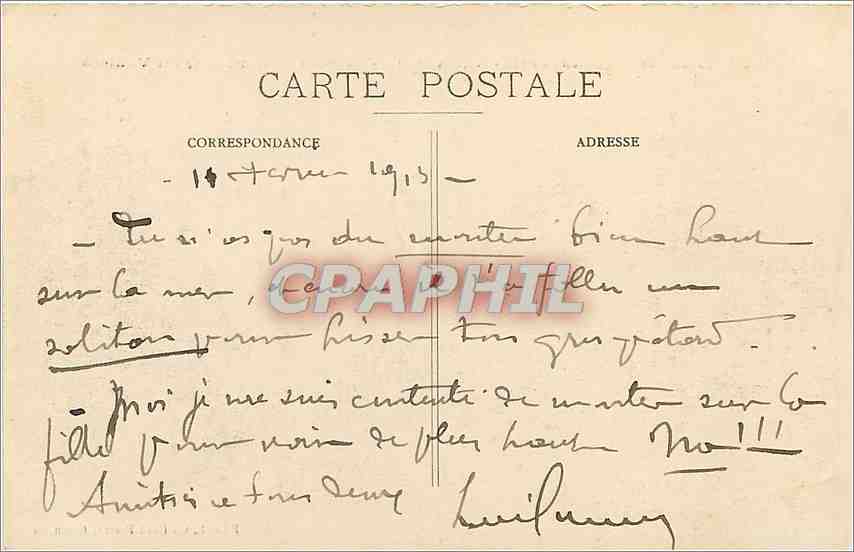 CARTE POSTALE
CORRESPONDANCE
ADRESSE
- 11 février 1913 -
- Tu n'as pas du monter bien haut
sur la mer, il t'a fallu un
solitaire pour hisser ton gros pétard.
- Moi je me suis contenté de monter sur la
fille pour voir de plus haut Na!!!
Amitiés à tous deux
CPAPHIL